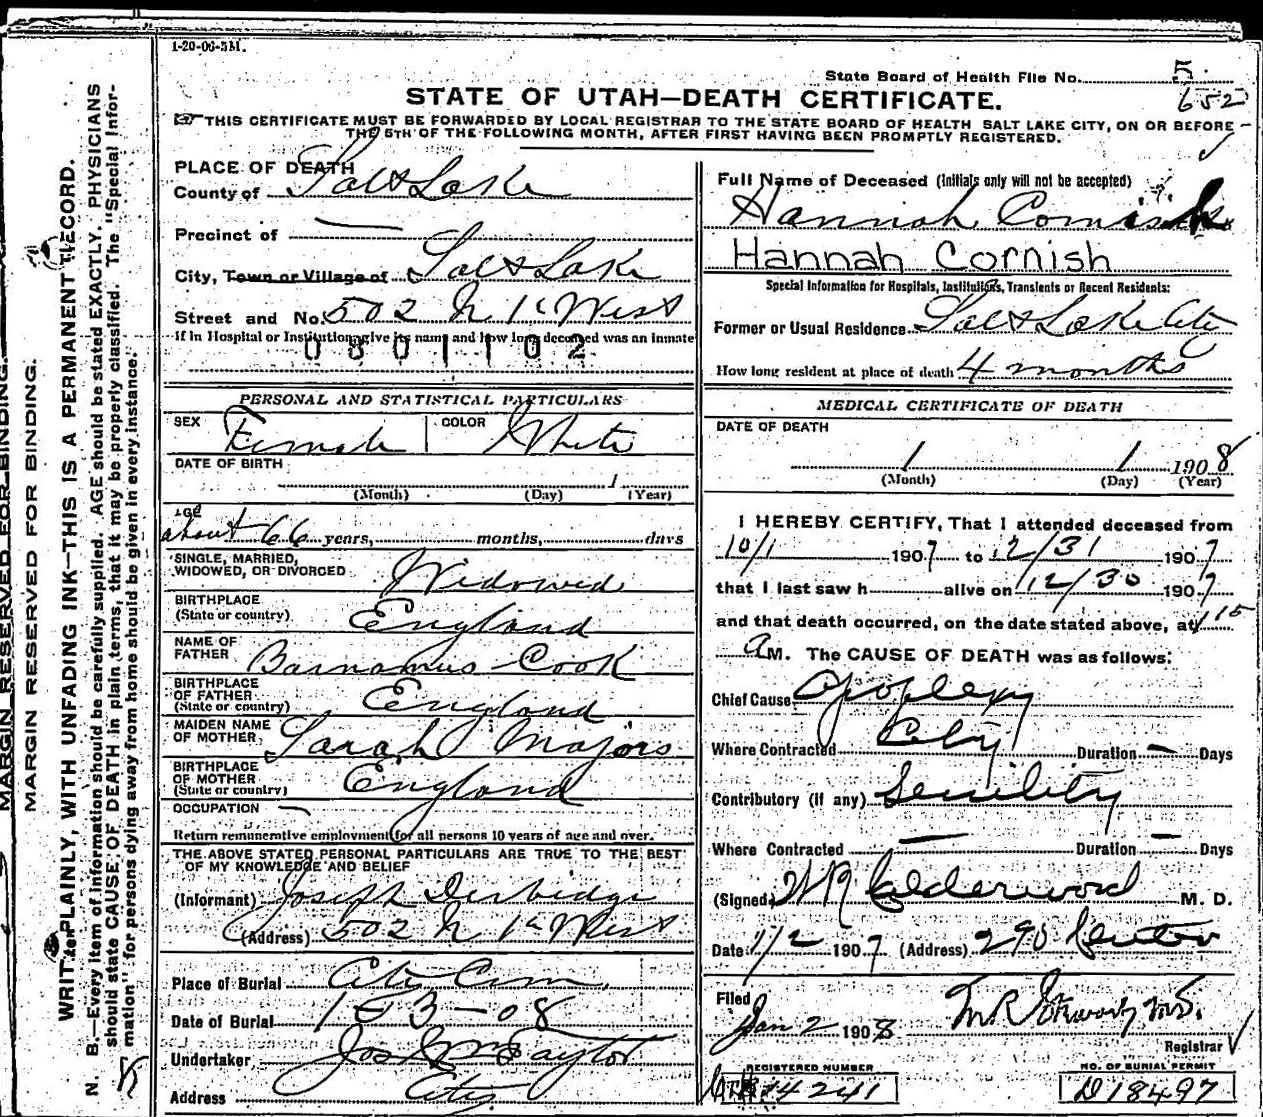 1-20-06-5M.
State Board of Health File No. 5
652
STATE OF UTAH—DEATH CERTIFICATE.
THIS CERTIFICATE MUST BE FORWARDED BY LOCAL REGISTRAR TO THE STATE BOARD OF HEALTH SALT LAKE CITY, ON OR BEFORE
THE 5TH OF THE FOLLOWING MONTH, AFTER FIRST HAVING BEEN PROMPTLY REGISTERED.
MARGIN RESERVED FOR BINDING.
MARGIN RESERVED FOR BINDING.
WRITE PLAINLY, WITH UNFADING INK—THIS IS A PERMANENT RECORD.
N. B.—Every item of information should be carefully supplied. AGE should be stated EXACTLY. PHYSICIANS
should state CAUSE OF DEATH in plain terms, that it may be properly classified. The "Special Infor-
mation" for persons dying away from home should be given in every instance.
PLACE OF DEATH
County of Salt Lake
Precinct of —
City, Town or Village of Salt Lake
Street and No. 502 N. 1st West
If in Hospital or Institution, give its name and how long deceased was an inmate
0801102
PERSONAL AND STATISTICAL PARTICULARS
SEX Female COLOR White
DATE OF BIRTH
(Month) (Day) (Year)
AGE
about 66 years, months, days
SINGLE, MARRIED,
WIDOWED, OR DIVORCED Widowed
BIRTHPLACE
(State or country) England
NAME OF
FATHER Barnamus Cook
BIRTHPLACE
OF FATHER
(State or country) England
MAIDEN NAME
OF MOTHER Sarah Majors
BIRTHPLACE
OF MOTHER
(State or country) England
OCCUPATION —
Return remunerative employment for all persons 10 years of age and over.
THE ABOVE STATED PERSONAL PARTICULARS ARE TRUE TO THE BEST
OF MY KNOWLEDGE AND BELIEF
(Informant) Joseph
(Address) 502 N. 1st West
Place of Burial City Cem.
Date of Burial 1-3-08
Undertaker Jos. Taylor
Address City
Full Name of Deceased (Initials only will not be accepted)
Hannah Cornish
Hannah Cornish
Special Information for Hospitals, Institutions, Transients or Recent Residents:
Former or Usual Residence Salt Lake City
How long resident at place of death 4 months
MEDICAL CERTIFICATE OF DEATH
DATE OF DEATH
1 1 1908
(Month) (Day) (Year)
I HEREBY CERTIFY, That I attended deceased from
10/1 1907 to 12/31 1907
that I last saw h alive on 12/30 1907
and that death occurred, on the date stated above, at 1 15
A M. The CAUSE OF DEATH was as follows:
Chief Cause Apoplexy
Where Contracted City Duration — Days
Contributory (if any) Senility
Where Contracted — Duration — Days
(Signed) W R Calderwood M. D.
Date 1/2 1907 (Address) 290 Center
Filed
Jan 2 1908
Registrar
REGISTERED NUMBER
14241
NO. OF BURIAL PERMIT
D 18497